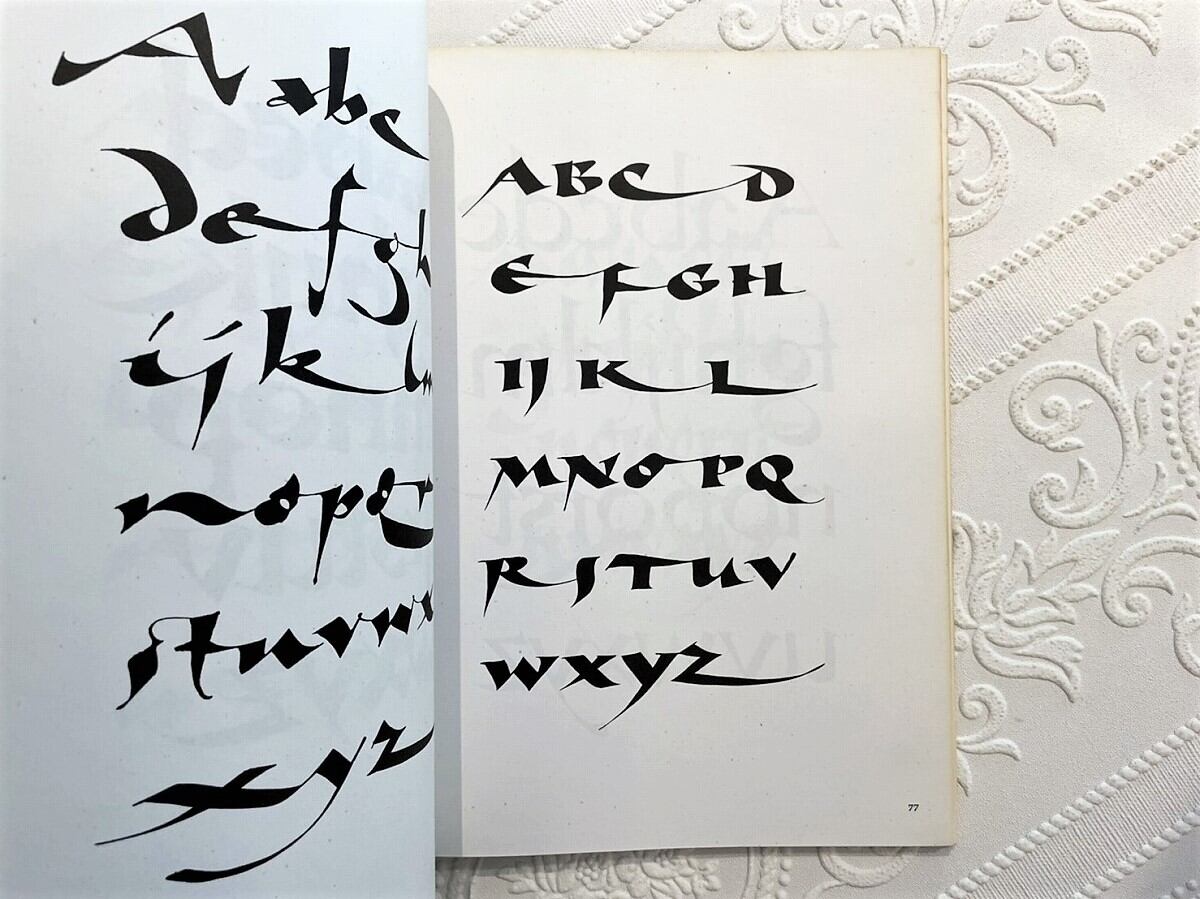 A abc
defgh
ijkl
nopq
stuvw
xyz
ABCD
EFGH
IJKL
MNOPQ
RSTUV
WXYZ
77